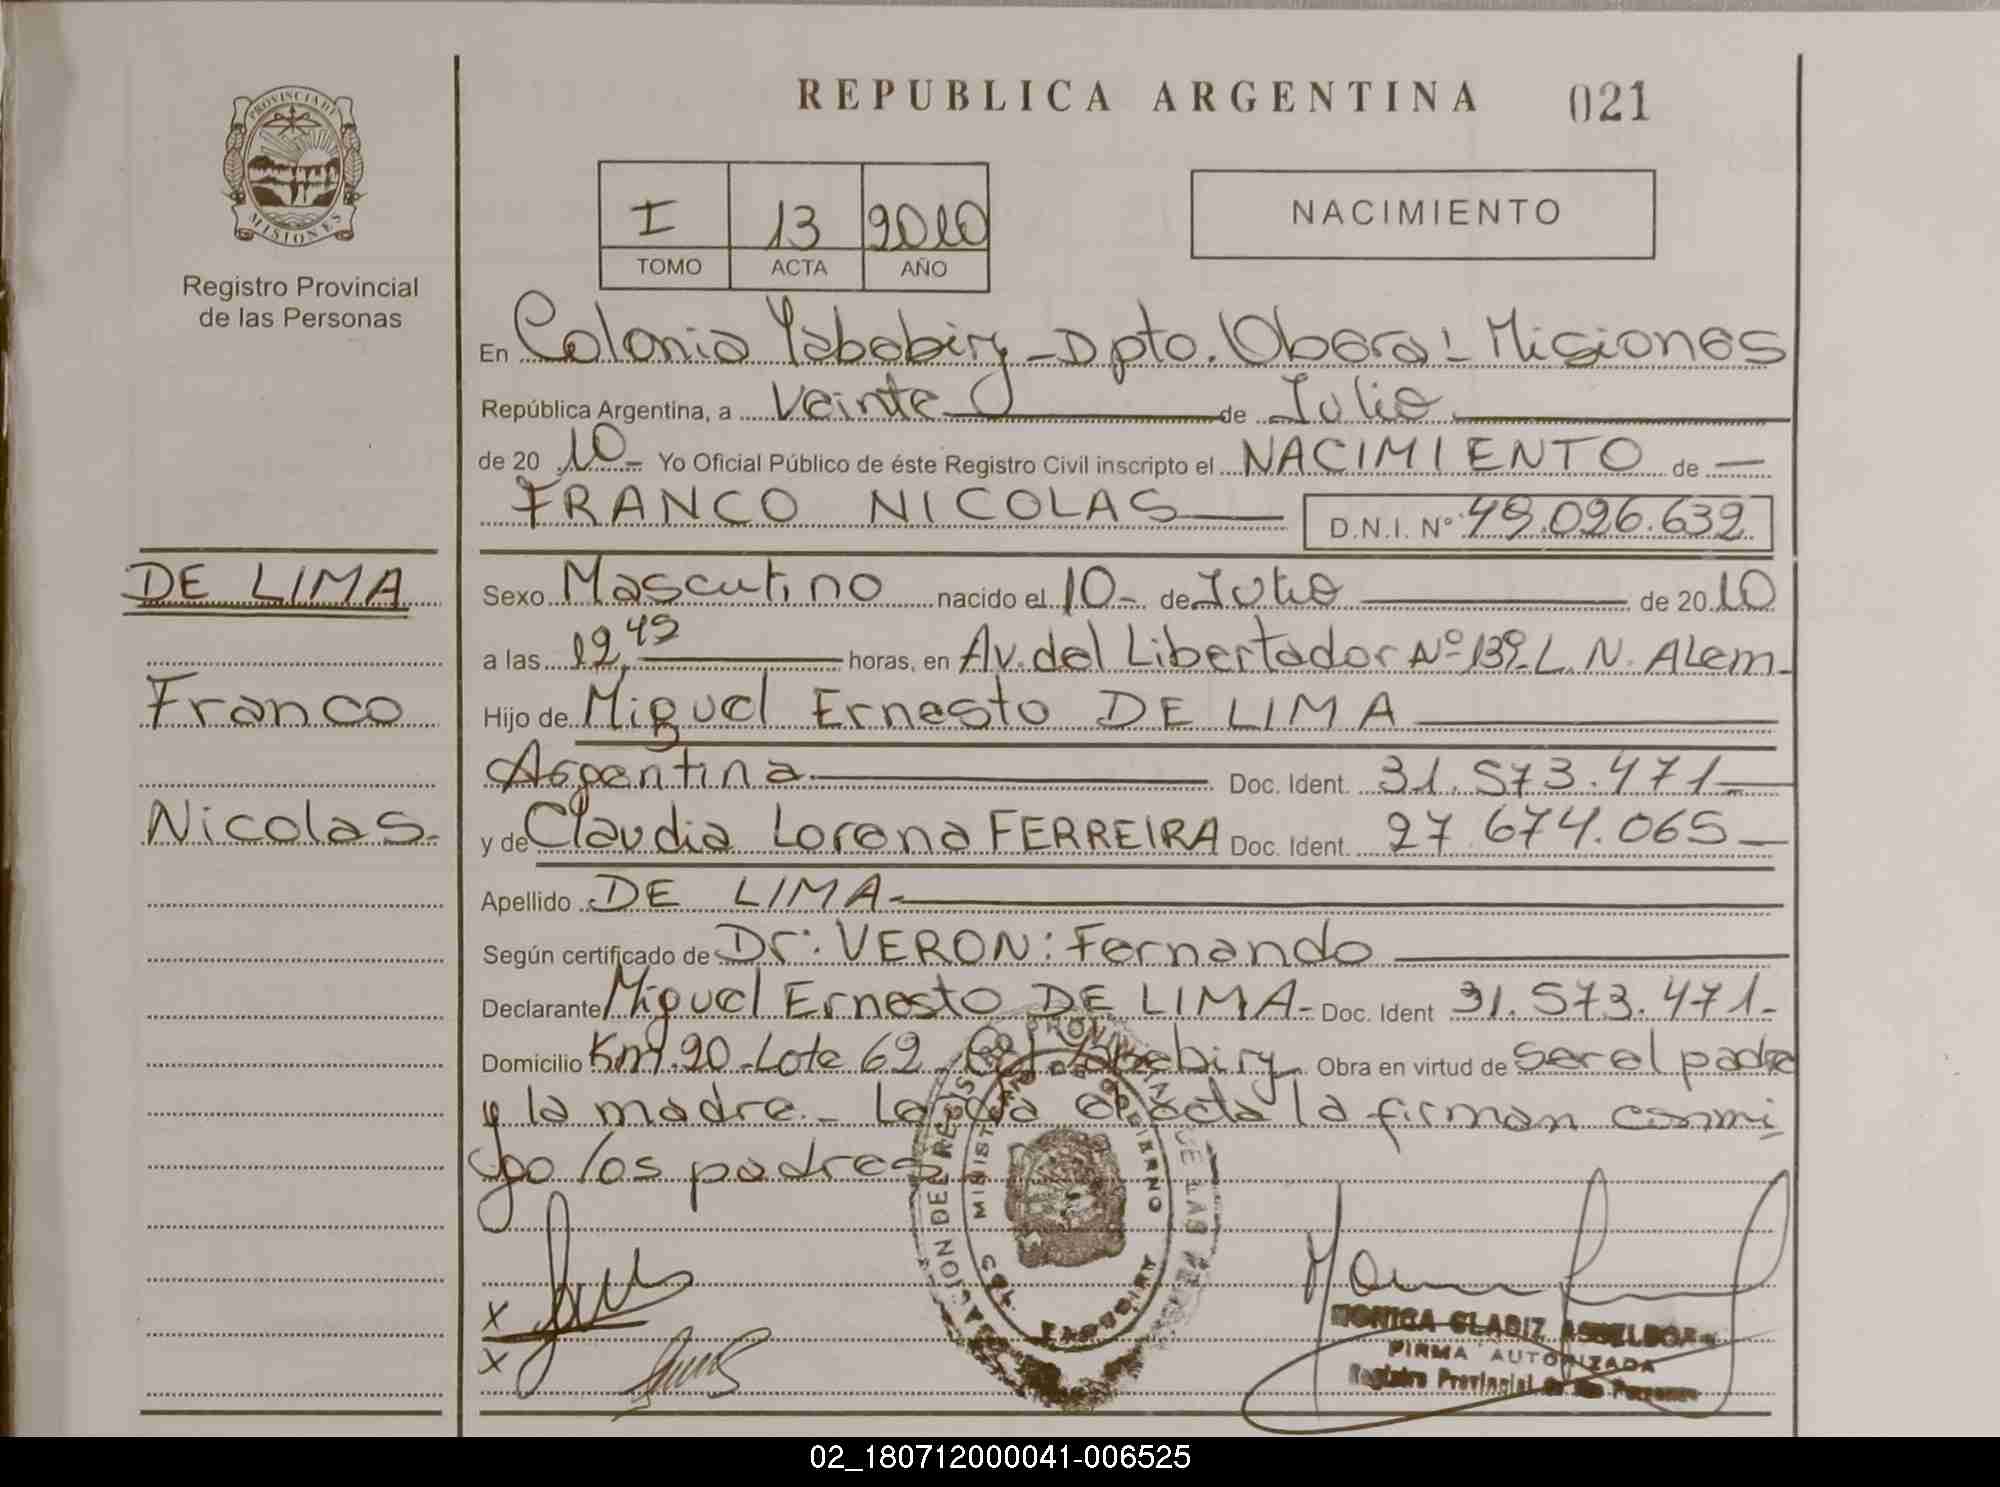 REPUBLICA ARGENTINA 021
PROVINCIA DE
MISIONES
Registro Provincial
de las Personas
I 13 2010
TOMO ACTA AÑO
NACIMIENTO
En Colonia Yabebiry - Dpto. Obera - Misiones
República Argentina, a Veinte de Julio
de 20 10 - Yo Oficial Público de éste Registro Civil inscripto el NACIMIENTO de
FRANCO NICOLAS D.N.I. Nº 49.026.632
DE LIMA
Franco
Nicolas.
Sexo Masculino nacido el 10 - de Julio de 20 10
a las 12,45 horas, en Av. del Libertador Nº 139 L. N. Alem -
Hijo de Miguel Ernesto DE LIMA
Argentina Doc. Ident. 31.573.471 -
y de Claudia Lorena FERREIRA Doc. Ident. 27 674.065 -
Apellido DE LIMA -
Según certificado de Dr: VERON: Fernando
Declarante Miguel Ernesto DE LIMA - Doc. Ident 31.573.471 -
Domicilio Km. 20 - Lote 62 - Col. Yabebiry Obra en virtud de ser el padre
y la madre. - Leida el acta la firman conmi
go los padres
x
x
MONICA GLADIZ
FIRMA AUTORIZADA
Registro Provincial de las Personas
02_180712000041-006525